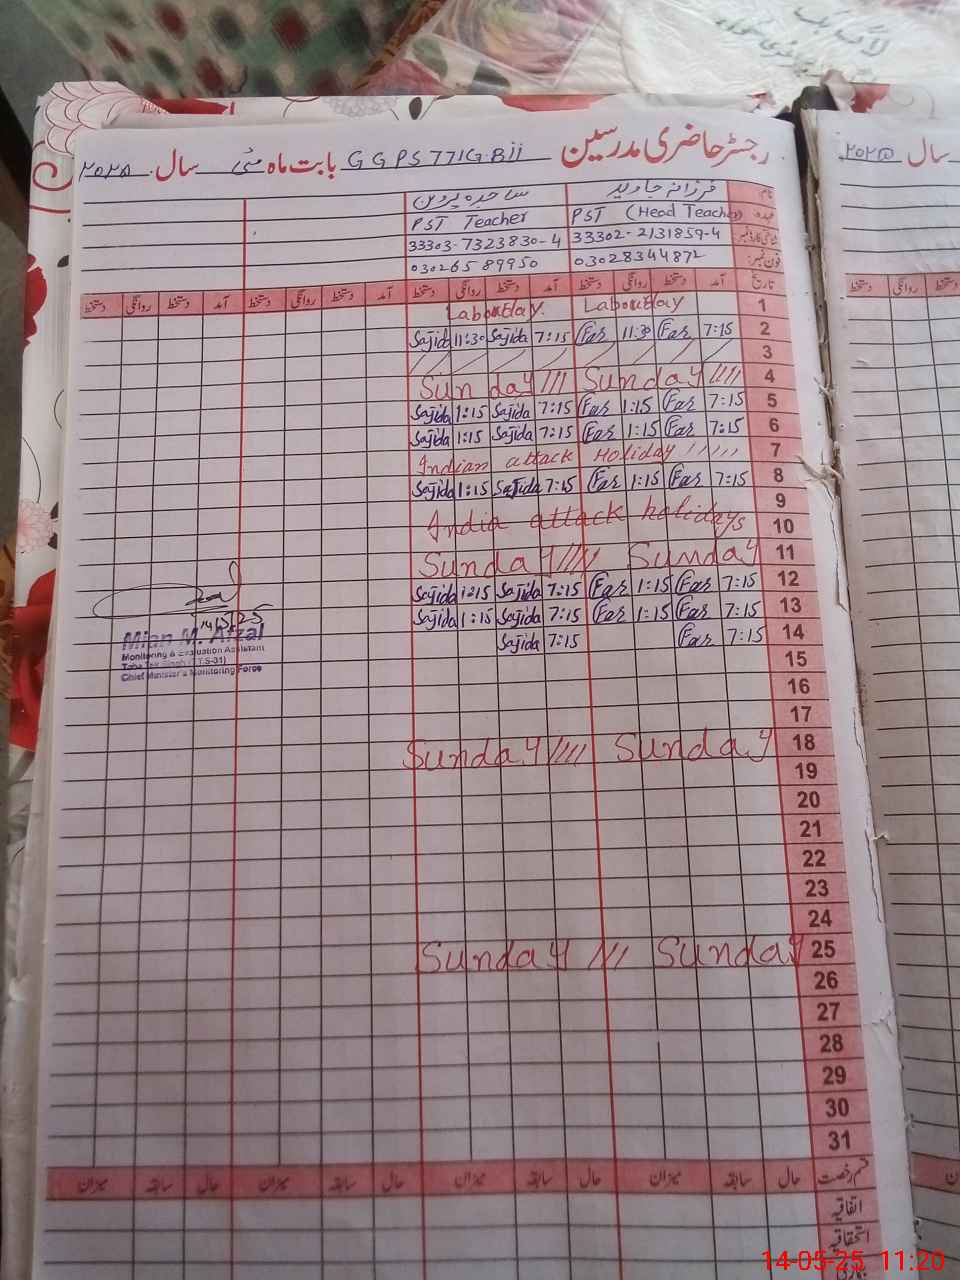 رجسٹر حاضری مدرسین GGPS 771G.Bii بابت ماہ مئی سال ۲۰۲۵
سال ۲۰۲۵
نام فرزانہ جاوید ساجدہ پروین
عہدہ PST (Head Teacher) PST Teacher
شناختی کارڈ نمبر 33302-2131859-4 33303-7323830-4
فون نمبر: 03028344872 03026589950
تاریخ آمد دستخط روانگی دستخط آمد دستخط روانگی دستخط آمد دستخط روانگی دستخط آمد دستخط روانگی دستخط
Labourday. Labourday 1
Sajida 11:30 Sajida 7:15 Far 11:30 Far 7:15 2
3
Sunday //// Sunday //// 4
Sajida 1:15 Sajida 7:15 Far 1:15 Far 7:15 5
Sajida 1:15 Sajida 7:15 Far 1:15 Far 7:15 6
Indian attack Holiday ////// 7
Sajida 1:15 Sajida 7:15 Far 1:15 Far 7:15 8
9
India attack holidays 10
Sunday //// Sunday 11
Sajida 1:15 Sajida 7:15 Far 1:15 Far 7:15 12
Sajida 1:15 Sajida 7:15 Far 1:15 Far 7:15 13
Sajida 7:15 Far 7:15 14
14/5/25
Mian M. Afzal
Monitoring & Evaluation Assistant
Toba Tek Singh (T.T.S-31)
Chief Minister's Monitoring Force
15
16
17
Sunday //// Sunday 18
19
20
21
22
23
24
Sunday /// Sunday 25
26
27
28
29
30
31
قسم رخصت حال سابقہ میزان حال سابقہ میزان حال سابقہ میزان حال سابقہ میزان
اتفاقیہ
استحقاقیہ
14-05-25 11:20